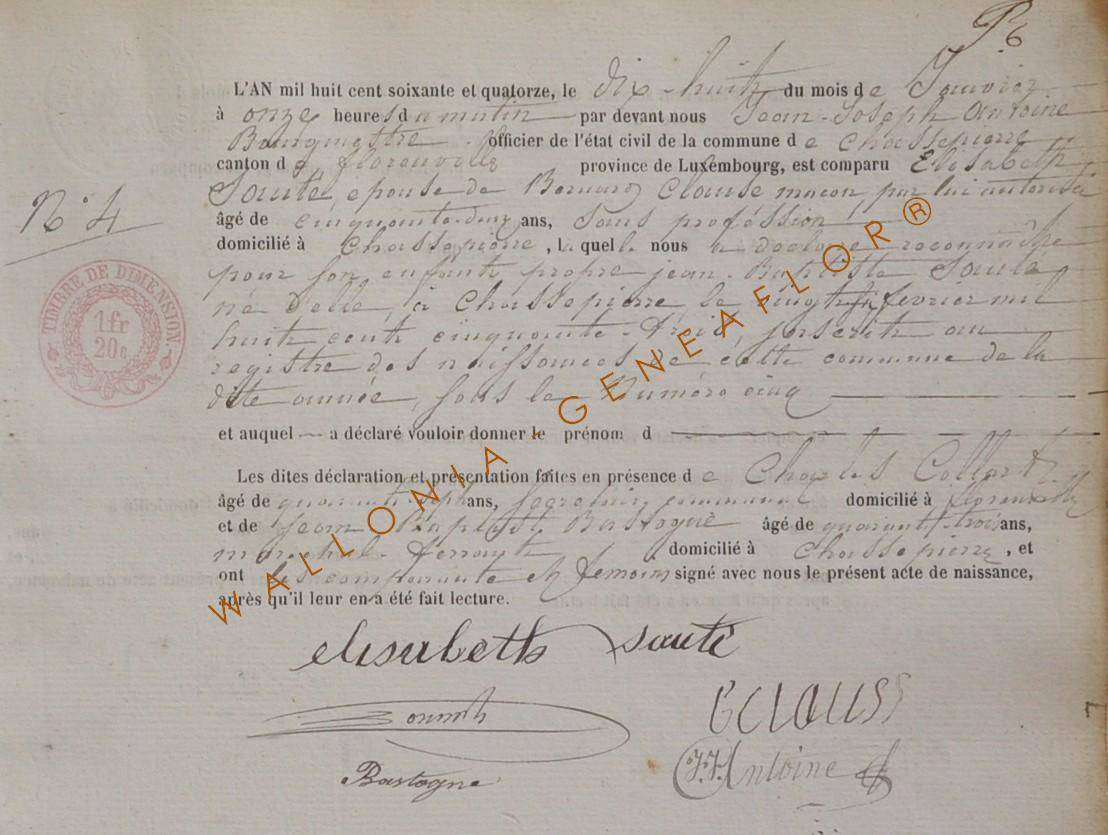 L'AN mil huit cent soixante et quatorze, le dix-huit du mois de Janvier
à onze heures du matin par devant nous Jean-Joseph Antoine
Bourgmestre officier de l'état civil de la commune de Chassepierre
canton de Florenville province de Luxembourg, est comparu Elisabeth
Sauté, épouse de Bernard Clause maçon, par lui autorisée
N° 4
âgé de cinquante-deux ans, sans profession,
domicilié à Chassepierre, laquelle nous a déclaré reconnaître
pour son enfant propre jean-Baptiste Sauté,
né d'elle, à Chassepierre, le vingt février mil
huit cent cinquante-trois, inscrit au
registre des naissances de cette commune de la
dite année, sous le Numéro cinq
et auquel a déclaré vouloir donner le prénom d
Les dites déclaration et présentation faites en présence de Charles Collart
âgé de quarante-sept ans, secrétaire communal domicilié à Florenville
et de Jean Baptiste Bastogne âgé de quarante-trois ans,
maréchal-ferrant domicilié à Chassepierre, et
ont les comparante et témoins signé avec nous le présent acte de naissance,
après qu'il leur en a été fait lecture.
TIMBRE DE DIMENSION
1fr
20c
WALLONIA-GENEAFLOR®
elisabeth sauté
B Clauss
J.J. Antoine
Bastogne